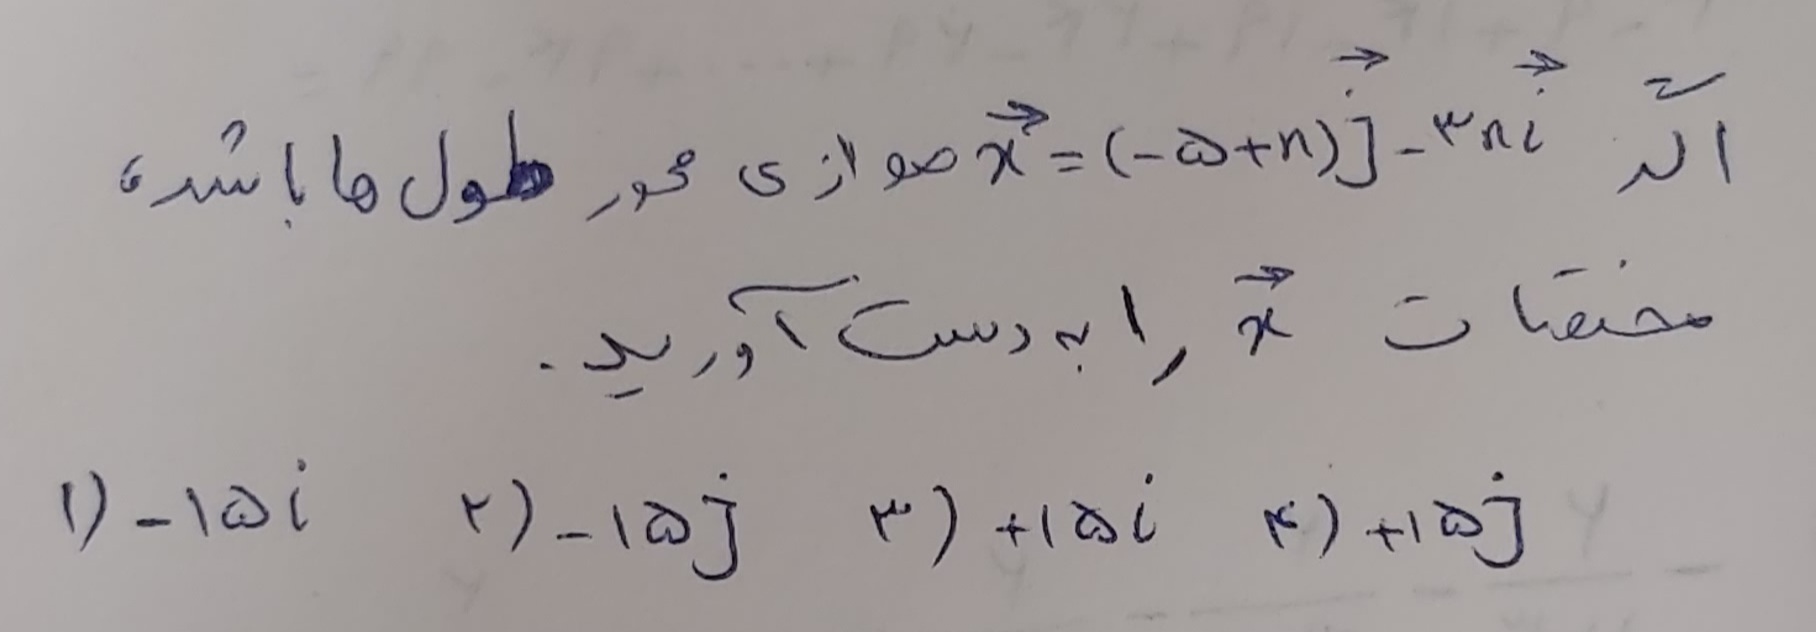 اگر x⃗ = (-۵+n)j⃗ - ۳ni⃗ موازی محور طول ها باشد،
مختصات x⃗ را به دست آورید.
۱) -۱۵i ۲) -۱۵j ۳) +۱۵i ۴) +۱۵j